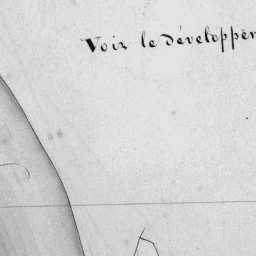 Voir le développem